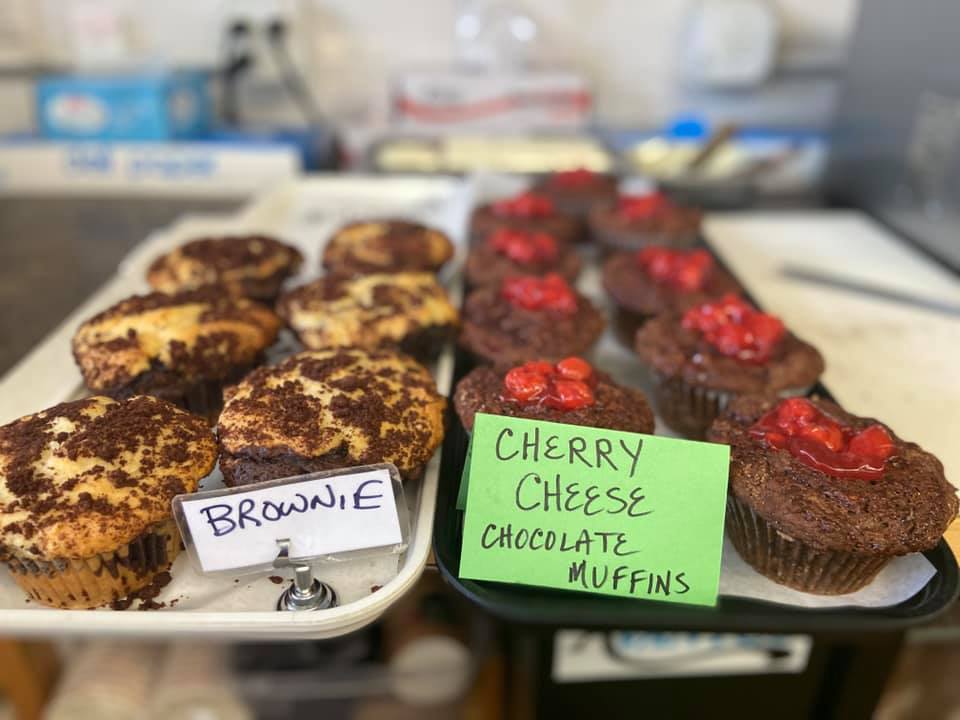 BROWNIE
CHERRY
CHEESE
CHOCOLATE
MUFFINS